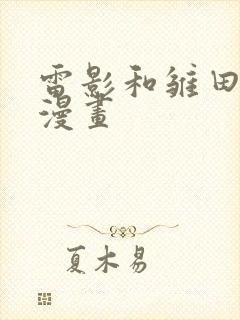 雷影和雏田
漫畫
夏木易